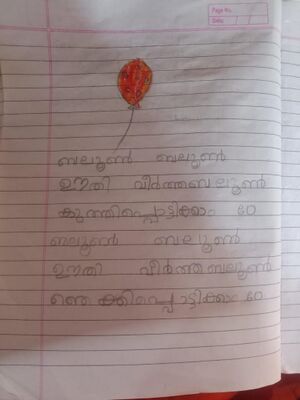 Page No.
Date:
ബലൂൺ ബലൂൺ
ഊതി വീർത്ത ബലൂൺ
കുത്തിപ്പൊട്ടിക്കാം ഠോ
ബലൂൺ ബലൂൺ
ഊതി വീർത്ത ബലൂൺ
ഞെക്കിപ്പൊട്ടിക്കാം ഠോ